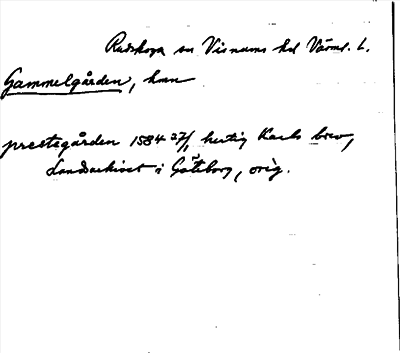 Rudskoga sn Visnums hd Värml. L.
Gammelgården, hmn
prestegården 1584 27/1 hertig Karls brev,
Landsarkivet i Göteborg, orig.